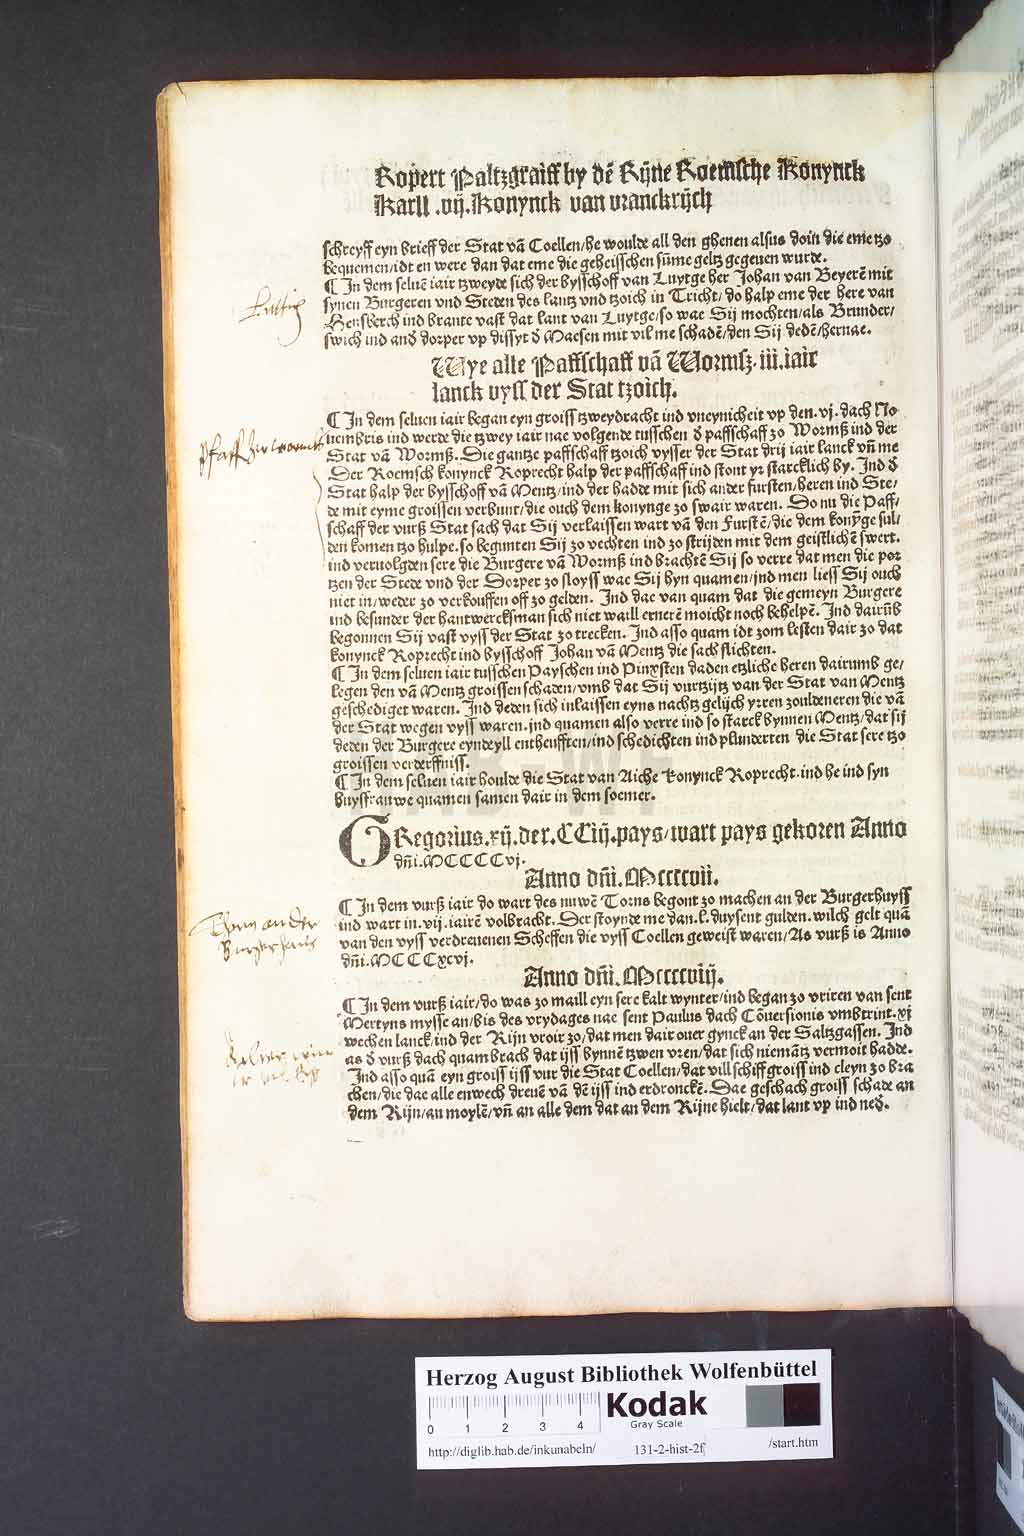 Ropert Paltzgraiff by dē Rijne Roemsche Konynck
Karll .vij. Konynck van vranckrijch
schreyff eyn brieff der Stat vā Coellen/he woulde all den ghenen alsus doin die eme tzo
bequemen/idt en were dan dat eme die geheisschen sūme geltz gegeuen wurde.
¶ In dem seluē iair tzweyde sich der bysschoff van Luytge her Johan van Beyerē mit
synen Burgeren vnd Steden des lantz vnd tzoich in Tricht/do halp eme der here van
Hensberch ind brante vast dat lant van Luytge/so wae Sij mochten/als Brunder/
swich ind and dorper vp dissyt đ Maesen mit vil me schadē/den Sij dedē/hernae.
Wye alle Paffschaff vā Wormsz.iii.iair
lanck vyss der Stat tzoich.
¶ In dem seluen iair began eyn groiss tzweydracht ind vneynicheit vp den.vj. dach No
uembris ind werde die tzwey iair nae volgende tusschen đ paffschaff zo Wormß ind der
Stat vā Wormß. Die gantze paffschaff tzoich vysser der Stat drij iair lanck vn̄ me
Der Roemsch konynck Roprecht halp der paffschaff ind stont yr starcklich by. Ind đ
Stat halp der bysschoff vā Mentz/ind der hadde mit sich ander fursten/heren ind Ste/
de mit eyme groissen verbunt/die ouch dem konynge zo swair waren. Do nu die Paff/
schaff der vurß Stat sach dat Sij verlaissen wart vā den Furstē/die dem konȳge sul/
den komen tzo hulpe.so begunten Sij zo vechten ind zo strijden mit dem geistlichē swert.
ind veruolgden sere die Burgere vā Wormß ind brachtē Sij so verre dat men die por
tzen der Stede vnd der Dorper zo sloyss wae Sij hyn quamen/jnd men liess Sij ouch
niet in/weder zo verkouffen off zo gelden. Ind dae van quam dat die gemeyn Burgere
ind besunder der hantwercksman sich niet waill ernerē moicht noch behelpē. Ind dairūb
begonnen Sij vast vyss der Stat zo trecken. Ind asso quam idt zom lesten dair zo dat
konynck Roprecht ind bysschoff Johan vā Mentz die sach slichten.
¶ In dem seluen iair tusschen Payschen ind Pinxsten daden etzliche heren dairumb ge/
legen den vā Mentz groissen schaden/vmb dat Sij vurtzijtz van der Stat van Mentz
geschediget waren. Ind deden sich inlaissen eyns nachtz gelijch yrren zouldeneren die vā
der Stat wegen vyss waren.ind quamen also verre ind so starck bynnen Mentz/dat sij
deden der Burgere eyndeyll entheufften/ind schedichten ind plunderten die Stat sere tzo
groissen verderffniss.
¶ In dem seluen iair houlde die Stat van Aiche konynck Roprecht.ind he ind syn
huysfrauwe quamen samen dair in dem soemer.
GRegorius.xij.der.CCiij.pays/wart pays gekoren Anno
dn̄i.MCCCCvj.
Anno dn̄i.Mccccvii.
¶ In dem vurß iair do wart des nuwē Torns begont zo machen an der Burgerhuyss
ind wart in.vij.iairē volbracht. Der stoynde me dan.l.duysent gulden.wilch gelt quā
van den vyss verdreuenen Scheffen die vyss Coellen geweist waren/As vurß is Anno
dn̄i.MCCCxcvj.
Anno dn̄i.Mccccviij.
¶ In dem vurß iair/do was zo maill eyn sere kalt wynter/ind began zo vriren van sent
Mertyns mysse an/bis des vrydages nae sent Paulus dach Cōuersionis vmbtrint.xj
wechen lanck/ind der Rijn vroir zo/dat men dair ouer gynck an der Saltzgassen. Ind
as đ vurß dach quam brach dat ijss bynnē tzwen vren/dat sich niemātz vermoit hadde.
Ind asso quā eyn groiss ijss vur die Stat Coellen/dat vill schiff groiss ind cleyn zo bra
chen/die dae alle enwech dreuē vā dē ijss ind erdronckē. Dae geschach groiss schade an
dem Rijn/an moylē/vn̄ an alle dem dat an dem Rijne hielt/dat lant vp ind ned.
Luttig
Thorn an der
Burgerhaus
HAB-WF
Herzog August Bibliothek Wolfenbüttel
0 1 2 3 4
Kodak
Gray Scale
http://diglib.hab.de/inkunabeln/ 131-2-hist-2f /start.htm